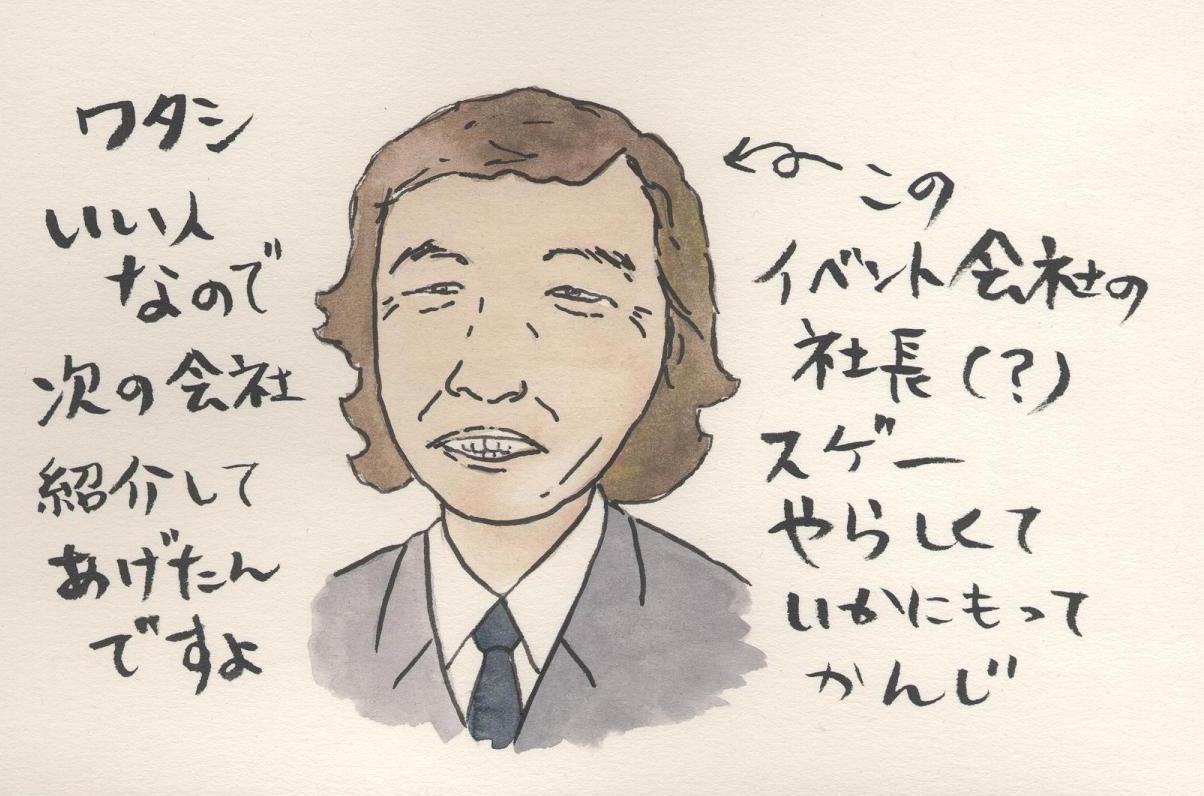 ワタシ
いい人
なので
次の会社
紹介して
あげたん
ですよ
この
イベント会社の
社長(?)
スゲー
やらしくて
いかにもって
かんじ